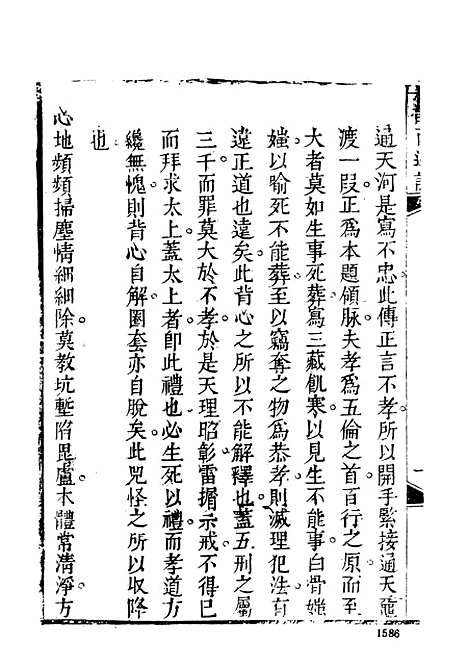 通天河是寫不忠此傳正言不孝所以開手緊接通天黿
渡一叚正爲本題領脉夫孝爲五倫之首百行之原而至
大者莫如生事死葬寫三藏飢寒以見生不能事白骨
以喻死不能葬至以竊奪之物爲恭孝則滅理犯法有
遠正道也遠矣此背心之所以不能解釋也蓋五刑之屬
三千而罪莫大於不孝於是天理昭彰雷搨示戒不得已
而拜求太上蓋太上者卽此禮也必生死以禮而孝道方
纔無愧則背心自解圈套亦自脫矣此兕怪之所以取降
也
心地頻頻掃塵情細細除莫教坑塹陷毘盧本體常清淨方
1586